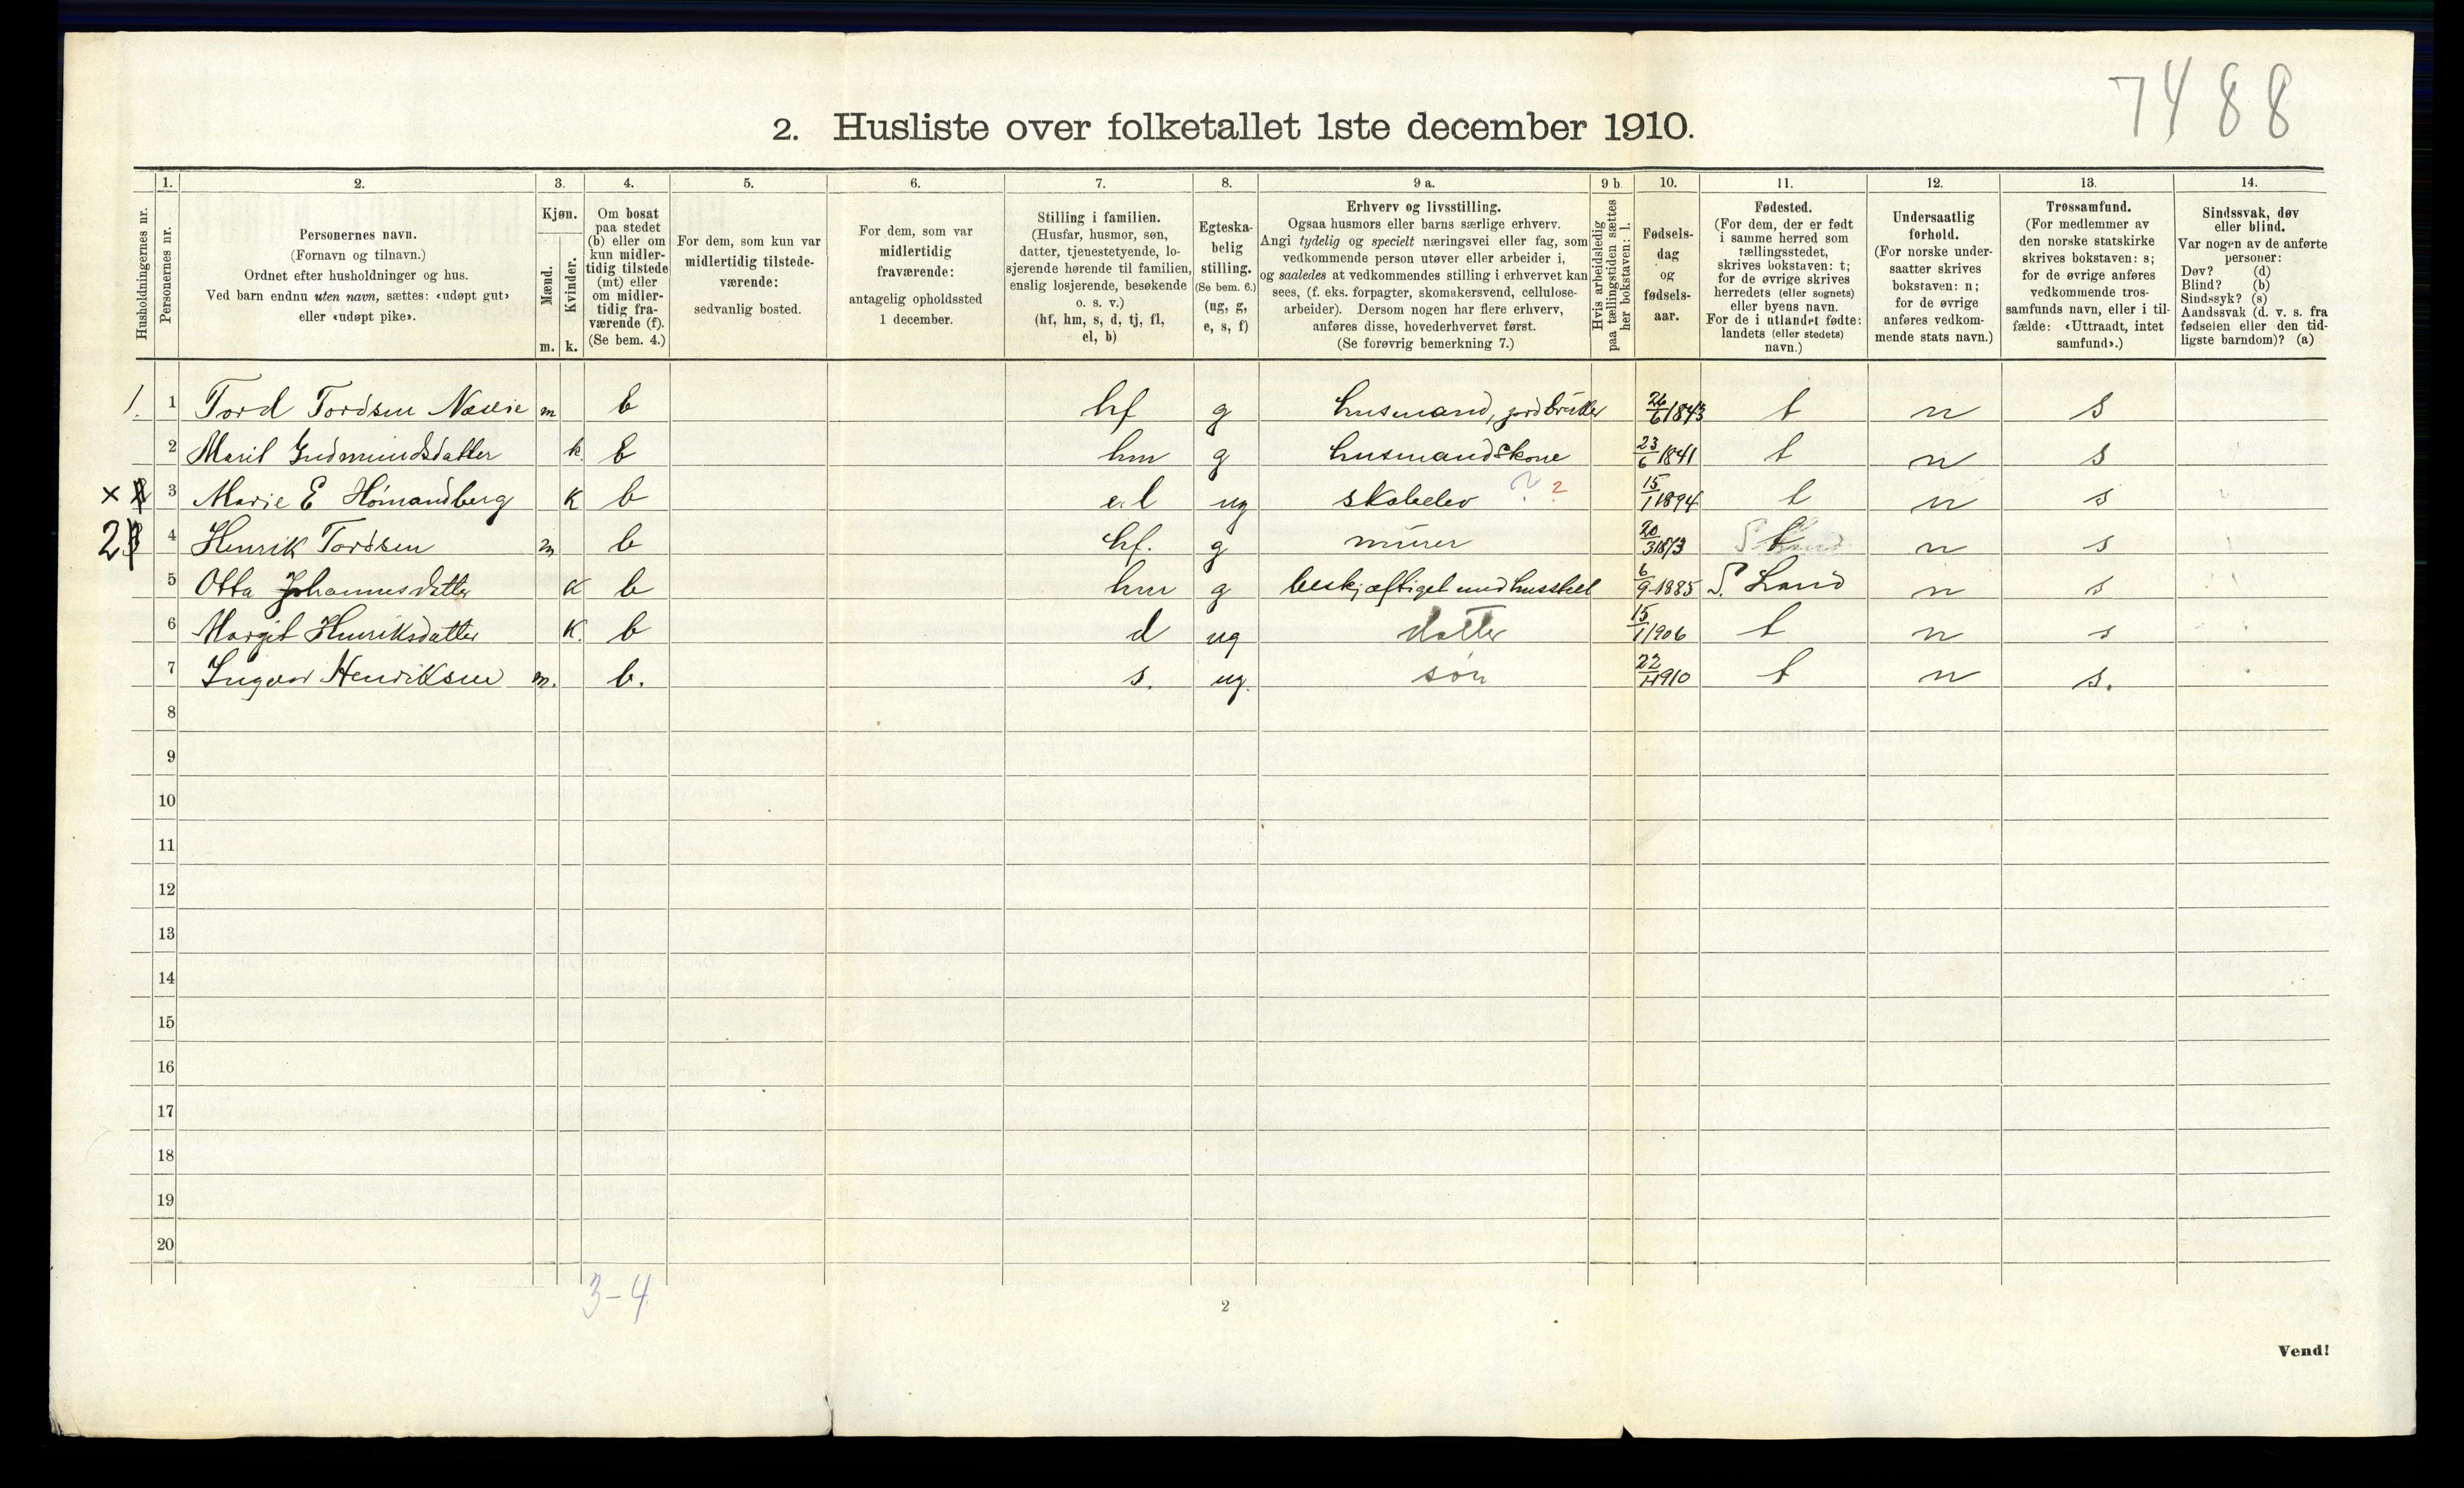 7488
2. Husliste over folketallet 1ste december 1910.
1. 2. 3. 4. 5. 6. 7. 8. 9 a. 9 b. 10. 11. 12. 13. 14.
Husholdningernes nr.
Personernes nr.
Personernes navn.
(Fornavn og tilnavn.)
Ordnet efter husholdninger og hus.
Ved barn endnu uten navn, sættes: «udøpt gut»
eller «udøpt pike».
Kjøn.
Mænd.
Kvinder.
m. k.
Om bosat
paa stedet
(b) eller om
kun midler-
tidig tilstede
(mt) eller
om midler-
tidig fra-
værende (f).
(Se bem. 4.)
For dem, som kun var
midlertidig tilstede-
værende:
sedvanlig bosted.
For dem, som var
midlertidig
fraværende:
antagelig opholdssted
1 december.
Stilling i familien.
(Husfar, husmor, søn,
datter, tjenestetyende, lo-
sjerende hørende til familien,
enslig losjerende, besøkende
o. s. v.)
(hf, hm, s, d, tj, fl,
el, b)
Egteska-
belig
stilling.
(Se bem. 6.)
(ug, g,
e, s, f)
Erhverv og livsstilling.
Ogsaa husmors eller barns særlige erhverv.
Angi tydelig og specielt næringsvei eller fag, som
vedkommende person utøver eller arbeider i,
og saaledes at vedkommendes stilling i erhvervet kan
sees, (f. eks. forpagter, skomakersvend, cellulose-
arbeider). Dersom nogen har flere erhverv,
anføres disse, hovederhvervet først.
(Se forøvrig bemerkning 7.)
Hvis arbeidsledig
paa tællingstiden sættes
her bokstaven: l.
Fødsels-
dag
og
fødsels-
aar.
Fødested.
(For dem, der er født
i samme herred som
tællingsstedet,
skrives bokstaven: t;
for de øvrige skrives
herredets (eller sognets)
eller byens navn.
For de i utlandet fødte:
landets (eller stedets)
navn.)
Undersaatlig
forhold.
(For norske under-
saatter skrives
bokstaven: n;
for de øvrige
anføres vedkom-
mende stats navn.)
Trossamfund.
(For medlemmer av
den norske statskirke
skrives bokstaven: s;
for de øvrige anføres
vedkommende tros-
samfunds navn, eller i til-
fælde: «Uttraadt, intet
samfund».)
Sindssvak, døv
eller blind.
Var nogen av de anførte
personer:
Døv? (d)
Blind? (b)
Sindssyk? (s)
Aandssvak (d. v. s. fra
fødselen eller den tid-
ligste barndom)? (a)
1. 1 Tord Tordsen m b hf g husmand, jordbruker 26/6 1843 t n s
2 Marit Gudmundsdatter k b hm g husmandskone 23/6 1841 t n s
x 3 Marie E Hømandberg k b el ug ? ? 15/1 1894 t n s
2 4 Henrik Tordsen m b hf. g murer 20/3 1873 t n s
5 Otta Johannesdatter k b hm g beskjæftiget med husstel 6/9 1885 S. Land n s
6 Margit Henriksdatter k. b d ug datter 15/1 1906 t n s
7 Ingvar Henriksen m. b. s. ug. søn 22/11 1910 t n s.
8
9
10
11
12
13
14
15
16
17
18
19
20
3-4
2
Vend!